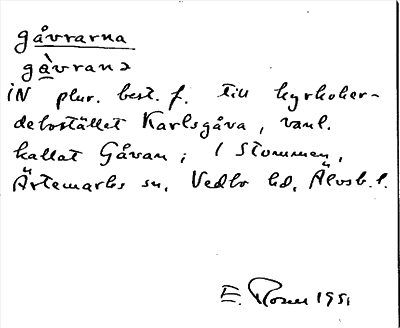 gåvrarna
gåvranɔ
IN plur. best. f. till kyrkoher-
debostället Karlsgåva, vanl.
kallat Gåvan; i Stommen,
Ärtemarks sn, Vedbo hd, Älvsb. l.
E. Rosell 1951